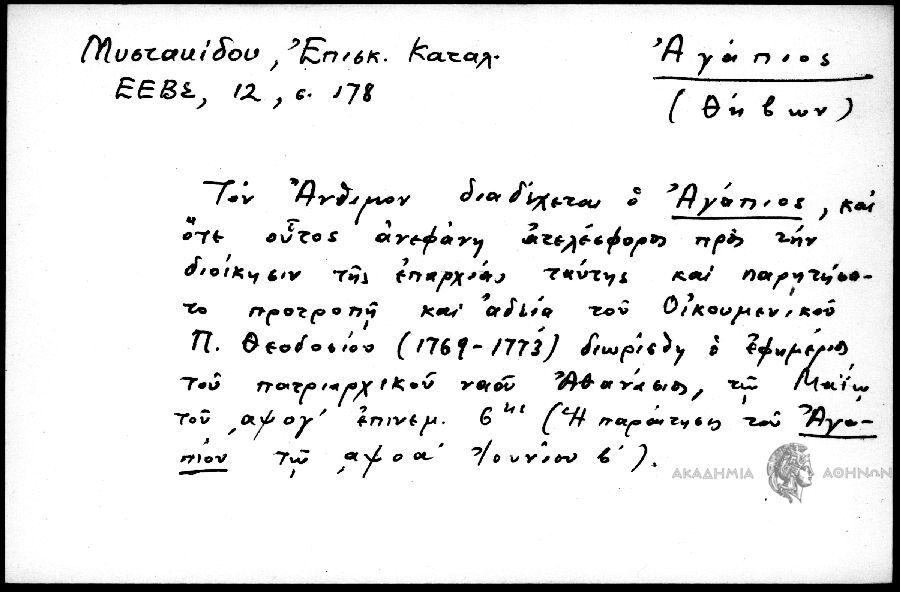 Μυστακίδου, Ἐπισκ. Καταλ.
ΕΕΒΣ, 12, σ. 178
Ἀγάπιος
(Θηβων)
Τόν Ἄνθιμον διαδέχεται ὁ Ἀγάπιος, καί
ὅτε οὗτος ἀνεφάνη ἀτελέσφορος πρός τήν
διοίκησιν τῆς ἐπαρχίας ταύτης καί παρητήσα-
το προτροπῇ καί ἀδείᾳ τοῦ Οἰκουμενικοῦ
Π. Θεοδοσίου (1769-1773) διωρίσθη ὁ ἐφημέριος
τοῦ πατριαρχικοῦ ναοῦ Ἀθανάσιος, τῷ Μαΐῳ
τοῦ ͵αψογ' ἐπινεμ. 6ης (Ἡ παραίτησις τοῦ Ἀγα-
πίου τῷ ͵αψοα' Ἰουνίου β').
ΑΚΑΔΗΜΙΑ ΑΘΗΝΩΝ